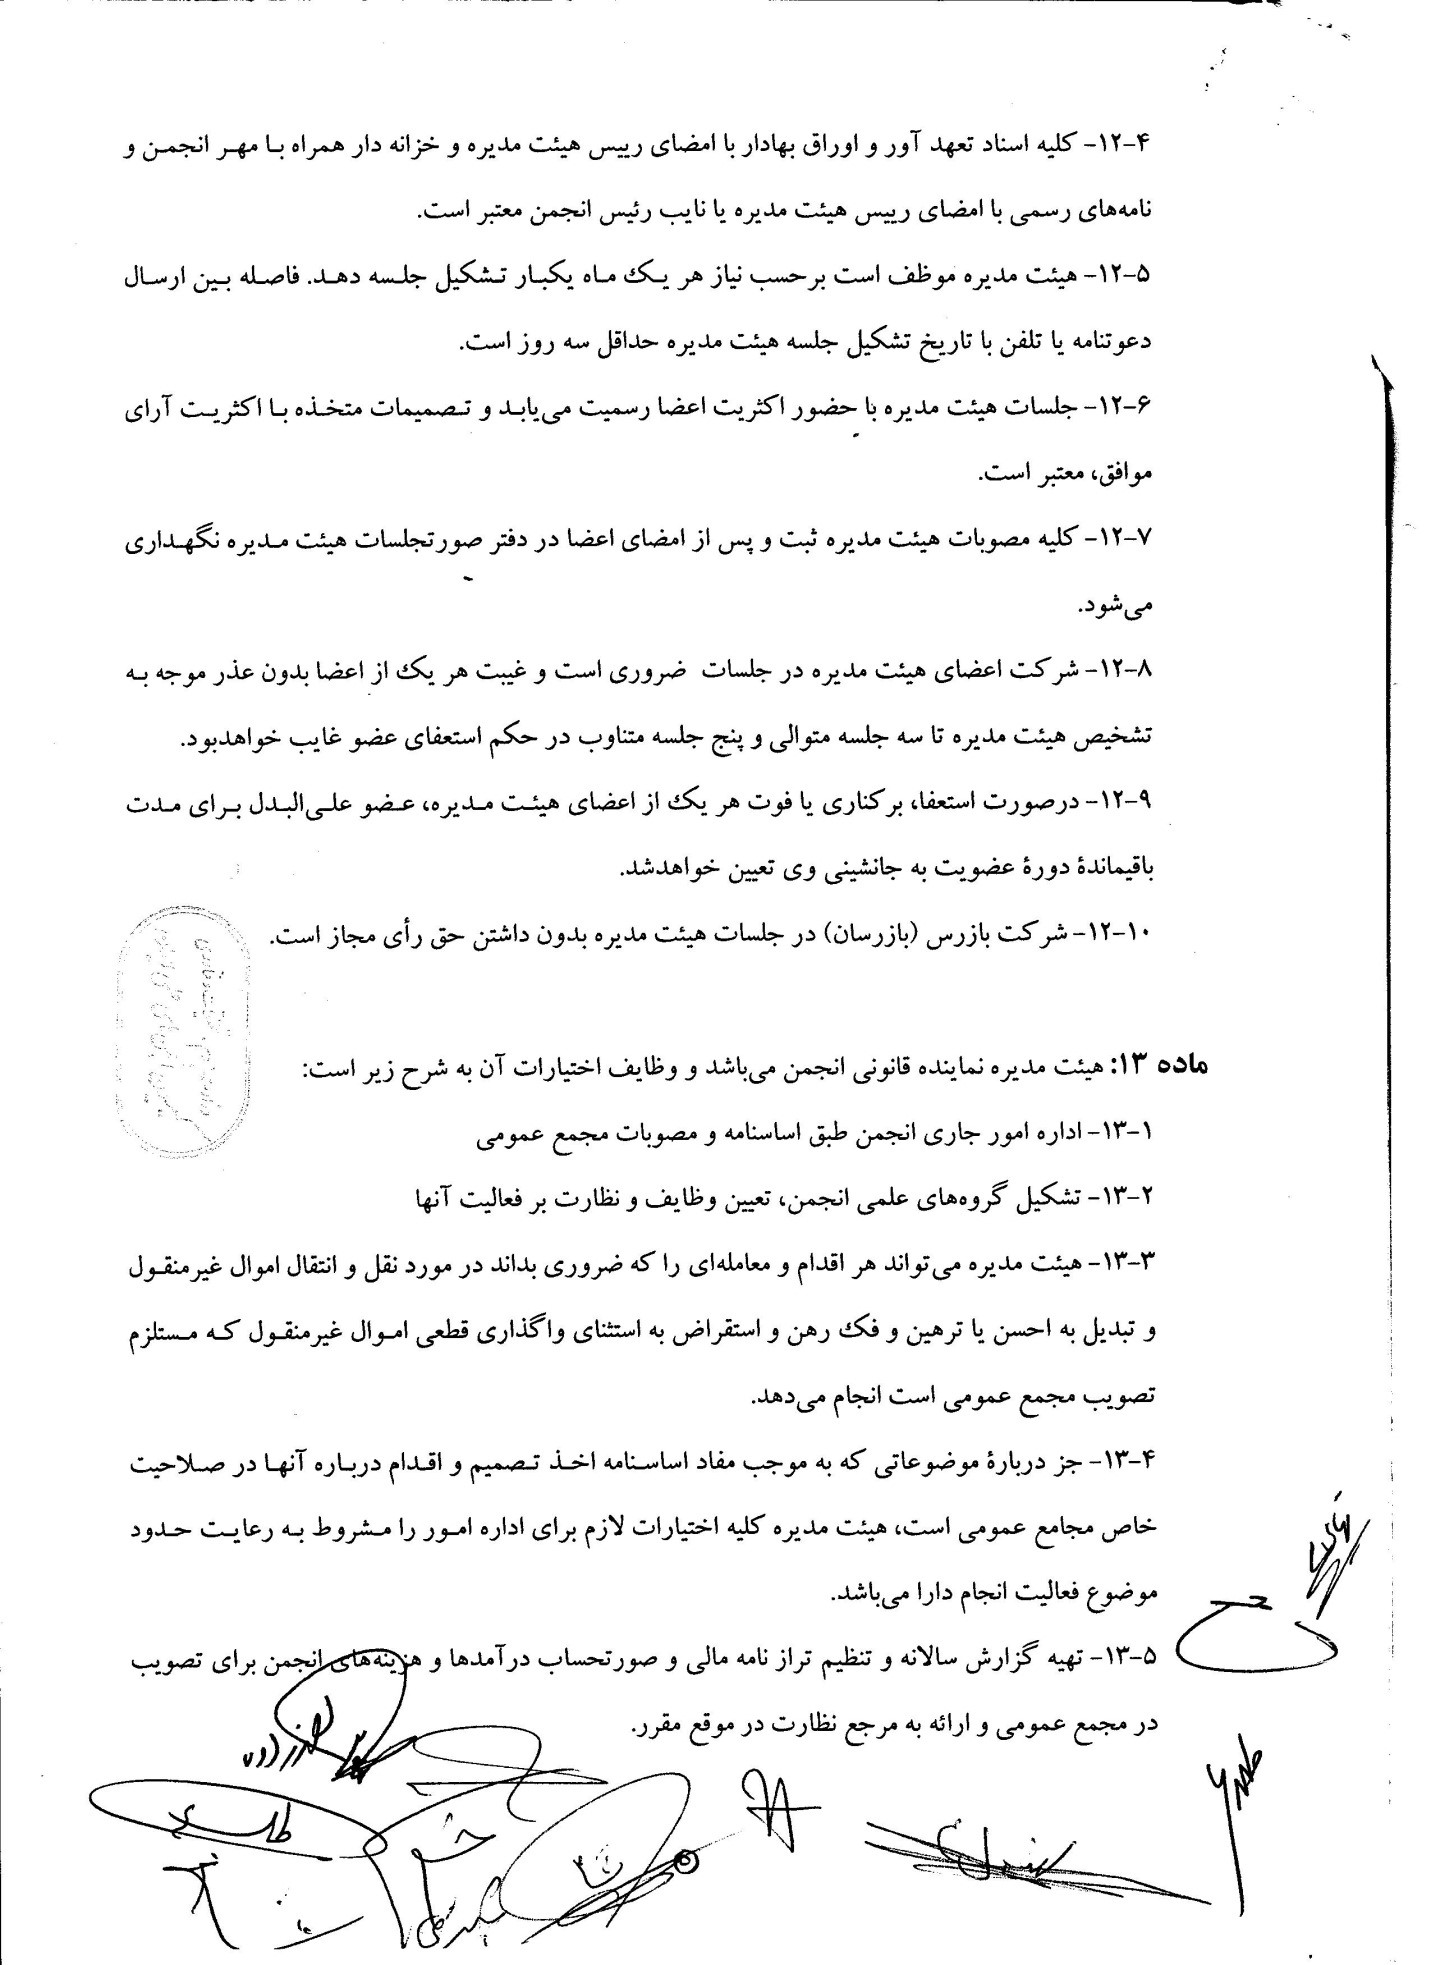 ۱۲-۴- کلیه اسناد تعهد آور و اوراق بهادار با امضای رییس هیئت مدیره و خزانه دار همراه با مهر انجمن و
نامه‌های رسمی با امضای رییس هیئت مدیره یا نایب رئیس انجمن معتبر است.
۱۲-۵- هیئت مدیره موظف است برحسب نیاز هر یک ماه یکبار تشکیل جلسه دهد. فاصله بین ارسال
دعوتنامه یا تلفن با تاریخ تشکیل جلسه هیئت مدیره حداقل سه روز است.
۱۲-۶- جلسات هیئت مدیره با حضور اکثریت اعضا رسمیت می‌یابد و تصمیمات متخذه با اکثریت آرای
موافق، معتبر است.
۱۲-۷- کلیه مصوبات هیئت مدیره ثبت و پس از امضای اعضا در دفتر صورتجلسات هیئت مدیره نگهداری
می‌شود.
۱۲-۸- شرکت اعضای هیئت مدیره در جلسات ضروری است و غیبت هر یک از اعضا بدون عذر موجه به
تشخیص هیئت مدیره تا سه جلسه متوالی و پنج جلسه متناوب در حکم استعفای عضو غایب خواهدبود.
۱۲-۹- درصورت استعفا، برکناری یا فوت هر یک از اعضای هیئت مدیره، عضو علی‌البدل برای مدت
باقیماندۀ دورۀ عضویت به جانشینی وی تعیین خواهدشد.
۱۲-۱۰- شرکت بازرس (بازرسان) در جلسات هیئت مدیره بدون داشتن حق رأی مجاز است.
ماده ۱۳: هیئت مدیره نماینده قانونی انجمن می‌باشد و وظایف اختیارات آن به شرح زیر است:
۱۳-۱- اداره امور جاری انجمن طبق اساسنامه و مصوبات مجمع عمومی
۱۳-۲- تشکیل گروه‌های علمی انجمن، تعیین وظایف و نظارت بر فعالیت آنها
۱۳-۳- هیئت مدیره می‌تواند هر اقدام و معامله‌ای را که ضروری بداند در مورد نقل و انتقال اموال غیرمنقول
و تبدیل به احسن یا ترهین و فک رهن و استقراض به استثنای واگذاری قطعی اموال غیرمنقول که مستلزم
تصویب مجمع عمومی است انجام می‌دهد.
۱۳-۴- جز دربارۀ موضوعاتی که به موجب مفاد اساسنامه اخذ تصمیم و اقدام درباره آنها در صلاحیت
خاص مجامع عمومی است، هیئت مدیره کلیه اختیارات لازم برای اداره امور را مشروط به رعایت حدود
موضوع فعالیت انجام دارا می‌باشد.
۱۳-۵- تهیه گزارش سالانه و تنظیم تراز نامه مالی و صورتحساب درآمدها و هزینه‌های انجمن برای تصویب
در مجمع عمومی و ارائه به مرجع نظارت در موقع مقرر.